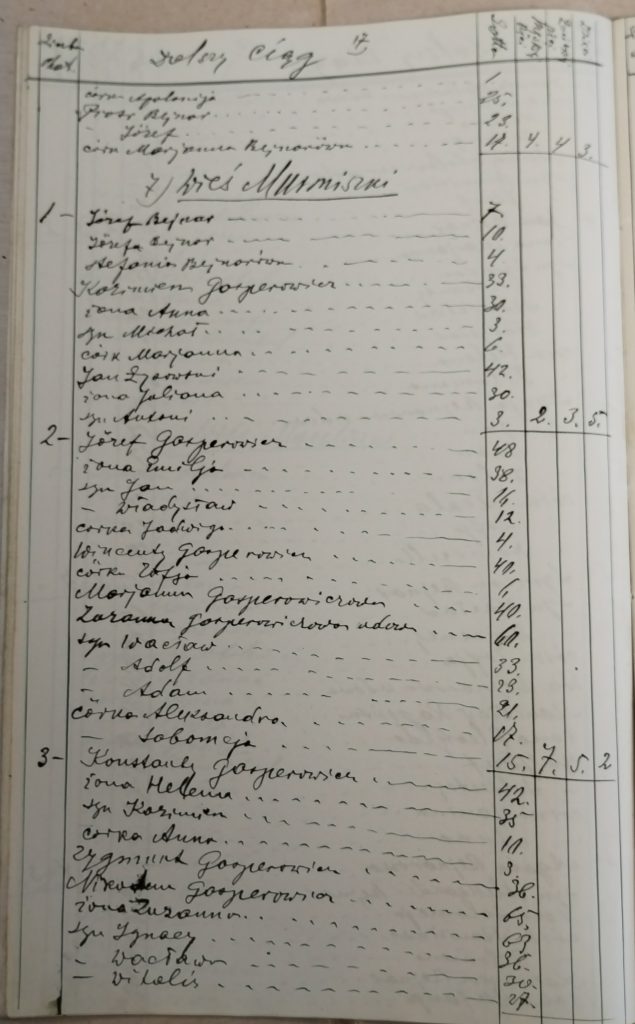 Dalszy ciąg 17
córka Apolonja 1
Piotr Bejnar 25.
- Józef 23.
córka Marjanna Bejnarówna 17. 4. 4 3.
7) Wieś Musniszki
1 - Józef Bejnar 7.
Józefa Bejnar 10.
Stefania Bejnarówna 4
Kazimierz Gasperowicz 33.
żona Anna 30.
syn Michał 3.
córk Marjanna 6.
Jan 42.
żona Juliana 30.
syn Antoni 3. 2. 3. 5.
2 - Józef Gasperowicz 48
żona Emilja 38.
syn Jan 14
- Władysław 12
córka Jadwiga 4.
Wincenty Gasperowicz 40.
córka Zofja
Marjanna Gasperowiczowa 40.
Zuzanna Gasperowiczowa wdowa 60.
syn Wacław 33
- Adolf 23.
- Adam 21.
córka Aleksandra 17.
- Salomeja 15. 7. 5. 2
3 - Konstanty Gasperowicz 42.
żona Helena 35
syn Kazimierz 10.
córka Anna 3.
Zygmunt Gasperowicz 36.
Nikodem Gasperowicz 65.
żona Zuzanna 63.
syn Ignacy 36.
- Wacław 30.
- Vitalis 27.